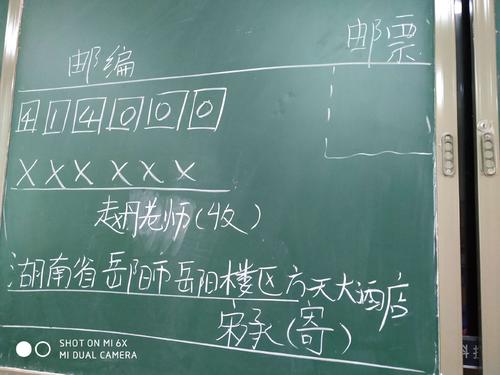 邮编 邮票
414000
XXX XXX
赵丹老师(收)
湖南省岳阳市岳阳楼区方天大酒店
宋承(寄)
SHOT ON MI 6X
MI DUAL CAMERA